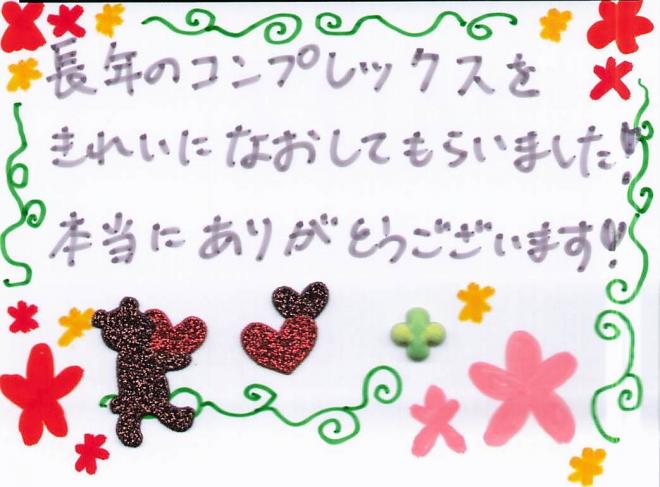 長年のコンプレックスを
きれいになおしてもらいました!
本当にありがとうございます♡